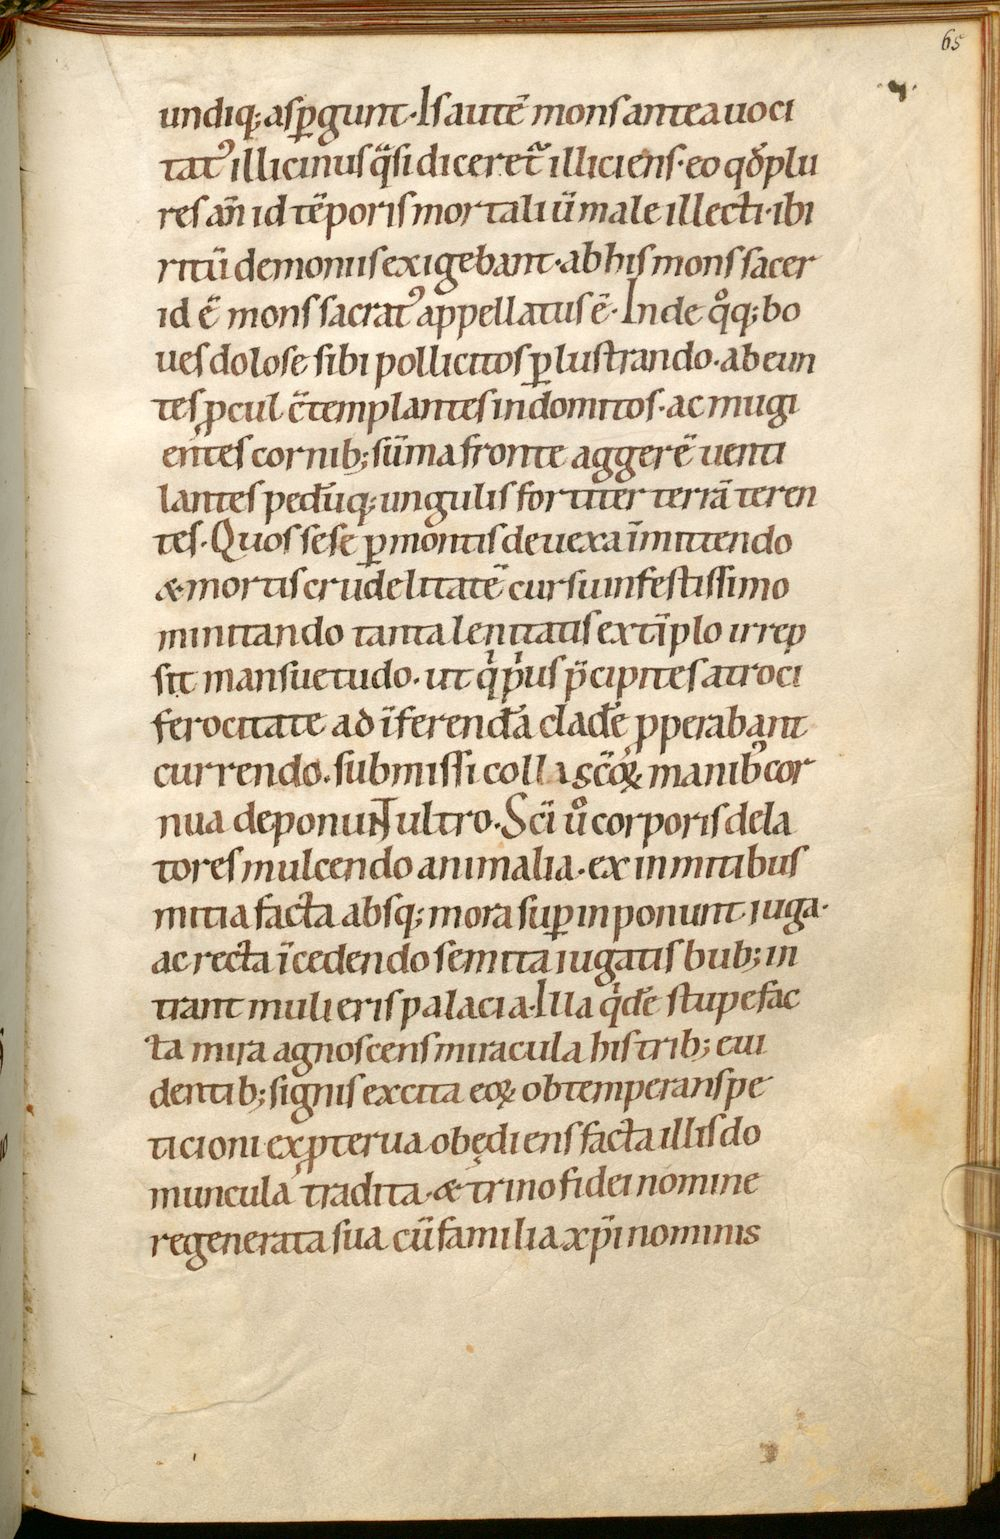 65
undiq; asꝑgunt· Is autē mons antea uoci
tatꝰ illicinus q̄si diceret᷑ illiciens· eo qđ plu
res an̄ id tēporis mortaliū male illecti· ibi
ritū demonus exigebant· ab his mons sacer
id ē mons sacratꝰ appellatus ē· Inde qͦq; bo
ues dolose sibi pollicitos ꝑlustrando· abeun
tes ꝓcul c̄templantes indomitos· ac mugi
entes cornib; sūma fronte aggerē uenti
lantes pedūq; ungulis fortiter terrā teren
tes· Quos sese ꝑ montis deuexa īmittendo
& mortis crudelitatē cursu infestissimo
minitando tanta lenitatis extīplo irrep
sit mansuetudo· ut qͥ pͥus p̄cipites atroci
ferocitate ad īferendā cladē ꝓperabant
currendo· submissi colla sc̄oꝝ manibꝰ cor
nua deponunt ultro· Sc̄i uͦ corporis dela
tores mulcendo animalia· ex inmitibus
mitia facta absq; mora suꝑinponunt iuga·
ac recta īcedendo semita iugatis bub; in
trant mulieris palacia· Illa qͥdē stupefac
ta mira agnoscens miracula his trib; eui
dentib; signis excita eoꝝ obtemperans pe
ticioni ex ꝓterua obędiens facta illis do
muncula tradita· & trino fidei nomine
regenerata sua cū familia xp̄i nominis